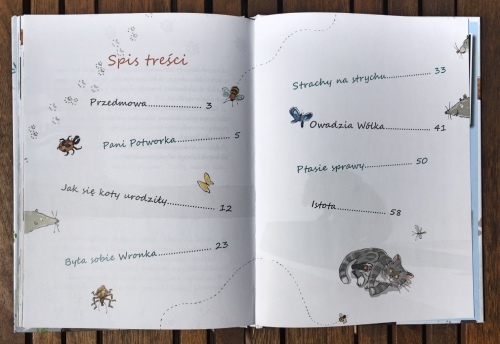 Spis treści
Przedmowa............... 3
Pani Potworka............... 5
Jak się koty urodziły............... 12
Była sobie Wronka............... 23
Strachy na strychu............... 33
Owadzia Wólka............... 41
Ptasie sprawy............... 50
Istota............... 58